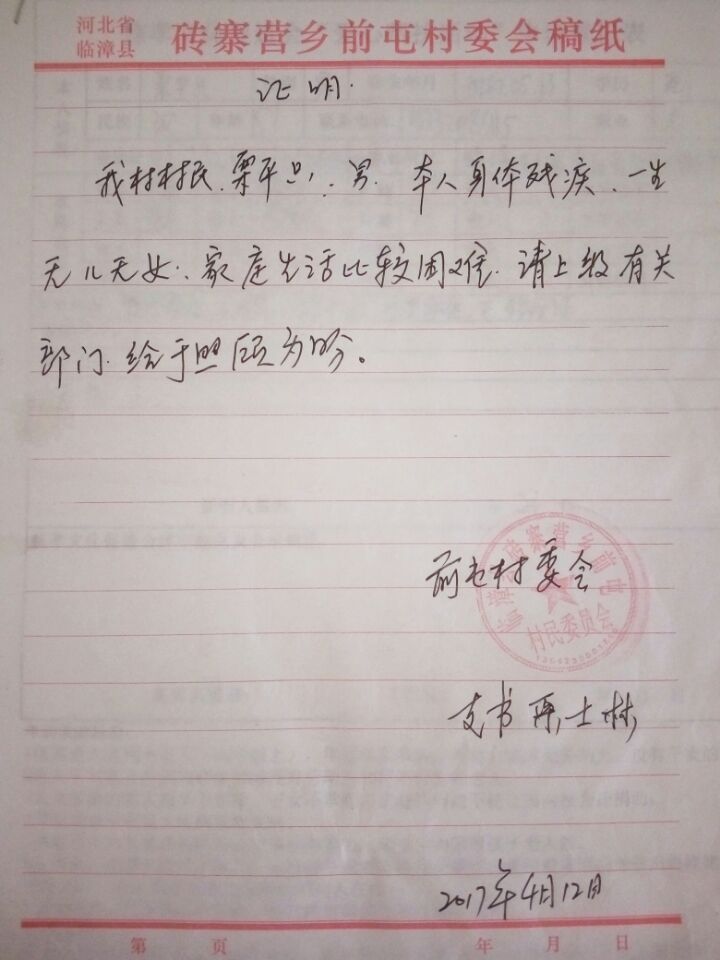 河北省
临漳县
砖寨营乡前屯村委会稿纸
证明.
我村村民.栗平只,.男.本人身体残疾.一生
无儿无女.家庭生活比较困难.请上级有关
部门.给于照顾为盼。
前屯村委会
临漳县砖寨营乡前屯
村民委员会
支书 士林
2017年4月12日
第 页 年 月 日